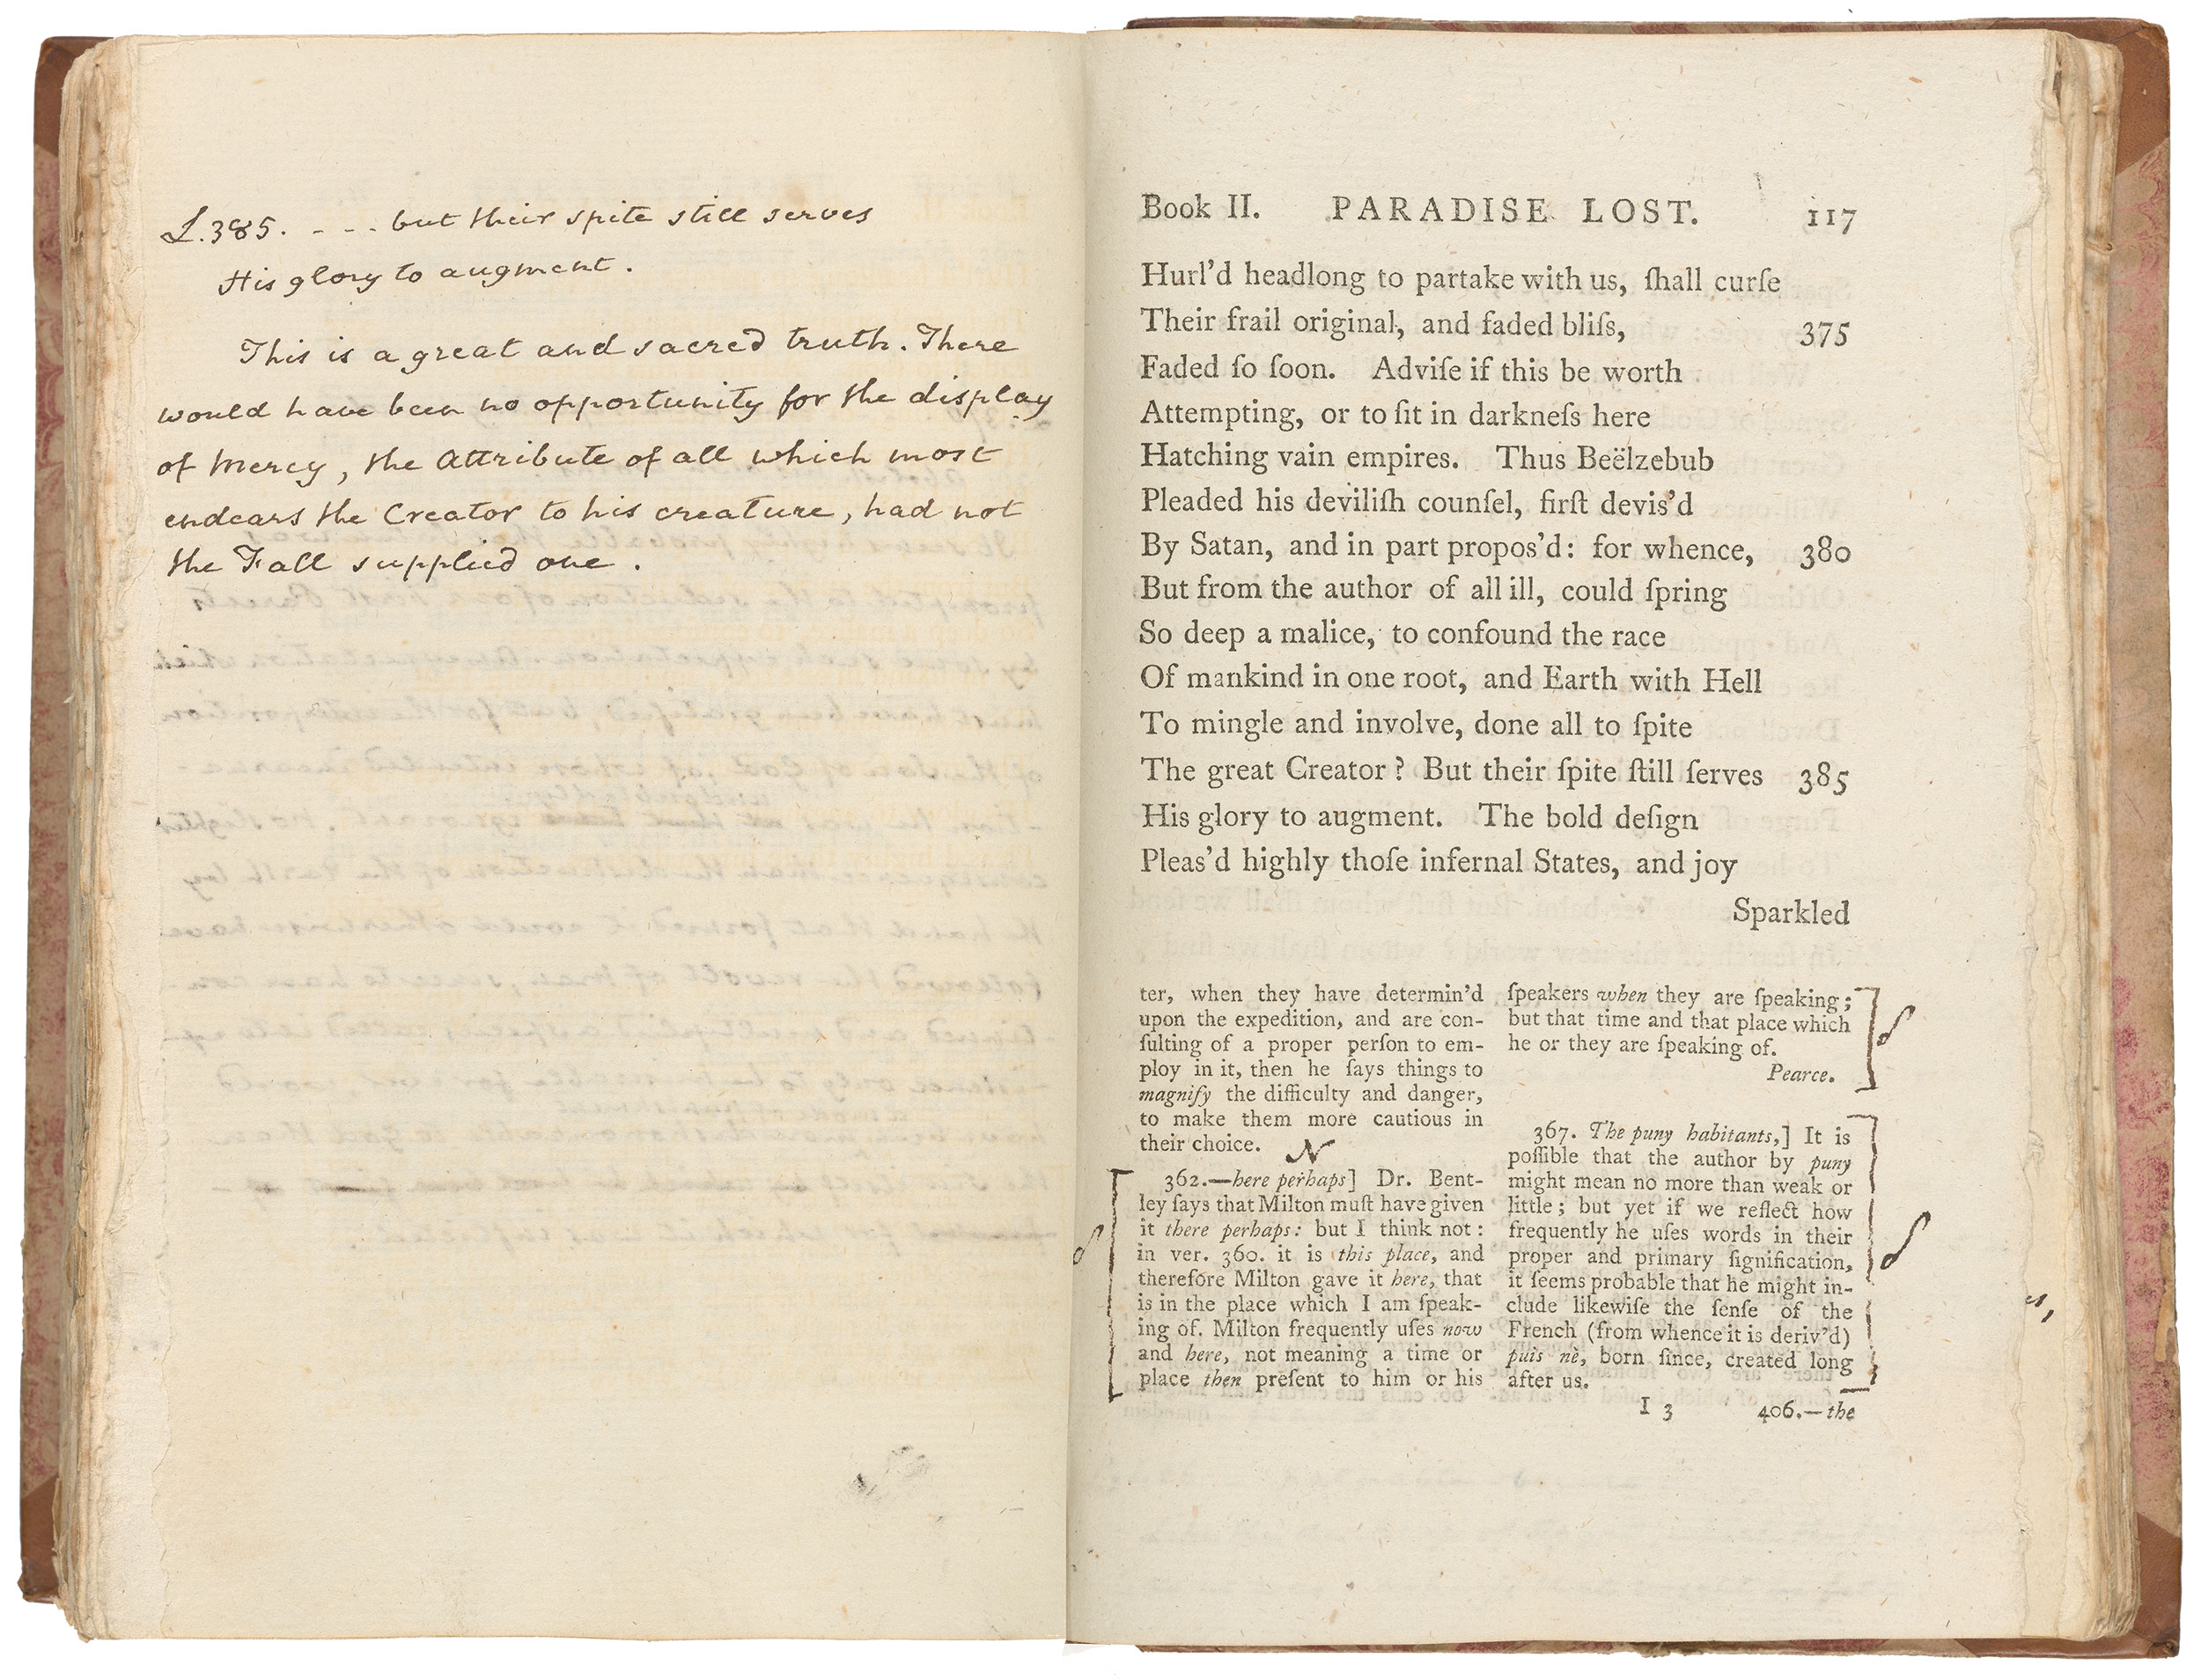 L.385. - - - but their spite still serves
His glory to augment.
This is a great and sacred truth. There
would have been no opportunity for the display
of Mercy, the Attribute of all which most
endears the Creator to his creature, had not
the Fall supplied one.
Book II. PARADISE LOST. 117
Hurl'd headlong to partake with us, ſhall curſe
Their frail original, and faded bliſs, 375
Faded ſo ſoon. Adviſe if this be worth
Attempting, or to ſit in darkneſs here
Hatching vain empires. Thus Beëlzebub
Pleaded his deviliſh counſel, firſt devis'd
By Satan, and in part propos'd: for whence, 380
But from the author of all ill, could ſpring
So deep a malice, to confound the race
Of mankind in one root, and Earth with Hell
To mingle and involve, done all to ſpite
The great Creator? But their ſpite ſtill ſerves 385
His glory to augment. The bold deſign
Pleas'd highly thoſe infernal States, and joy
Sparkled
ter, when they have determin'd
upon the expedition, and are con-
ſulting of a proper perſon to em-
ploy in it, then he ſays things to
magnify the difficulty and danger,
to make them more cautious in
their choice. N
362.—here perhaps] Dr. Bent-
ley ſays that Milton muſt have given
it there perhaps: but I think not:
in ver. 360. it is this place, and
therefore Milton gave it here, that
is in the place which I am ſpeak-
ing of. Milton frequently uſes now
and here, not meaning a time or
place then preſent to him or his
ſpeakers when they are ſpeaking;
but that time and that place which
he or they are ſpeaking of.
Pearce.
367. The puny habitants,] It is
poſſible that the author by puny
might mean no more than weak or
little; but yet if we reflect how
frequently he uſes words in their
proper and primary ſignification,
it ſeems probable that he might in-
clude likewiſe the ſenſe of the
French (from whence it is deriv'd)
puis nè, born ſince, created long
after us.
I 3 406.—the